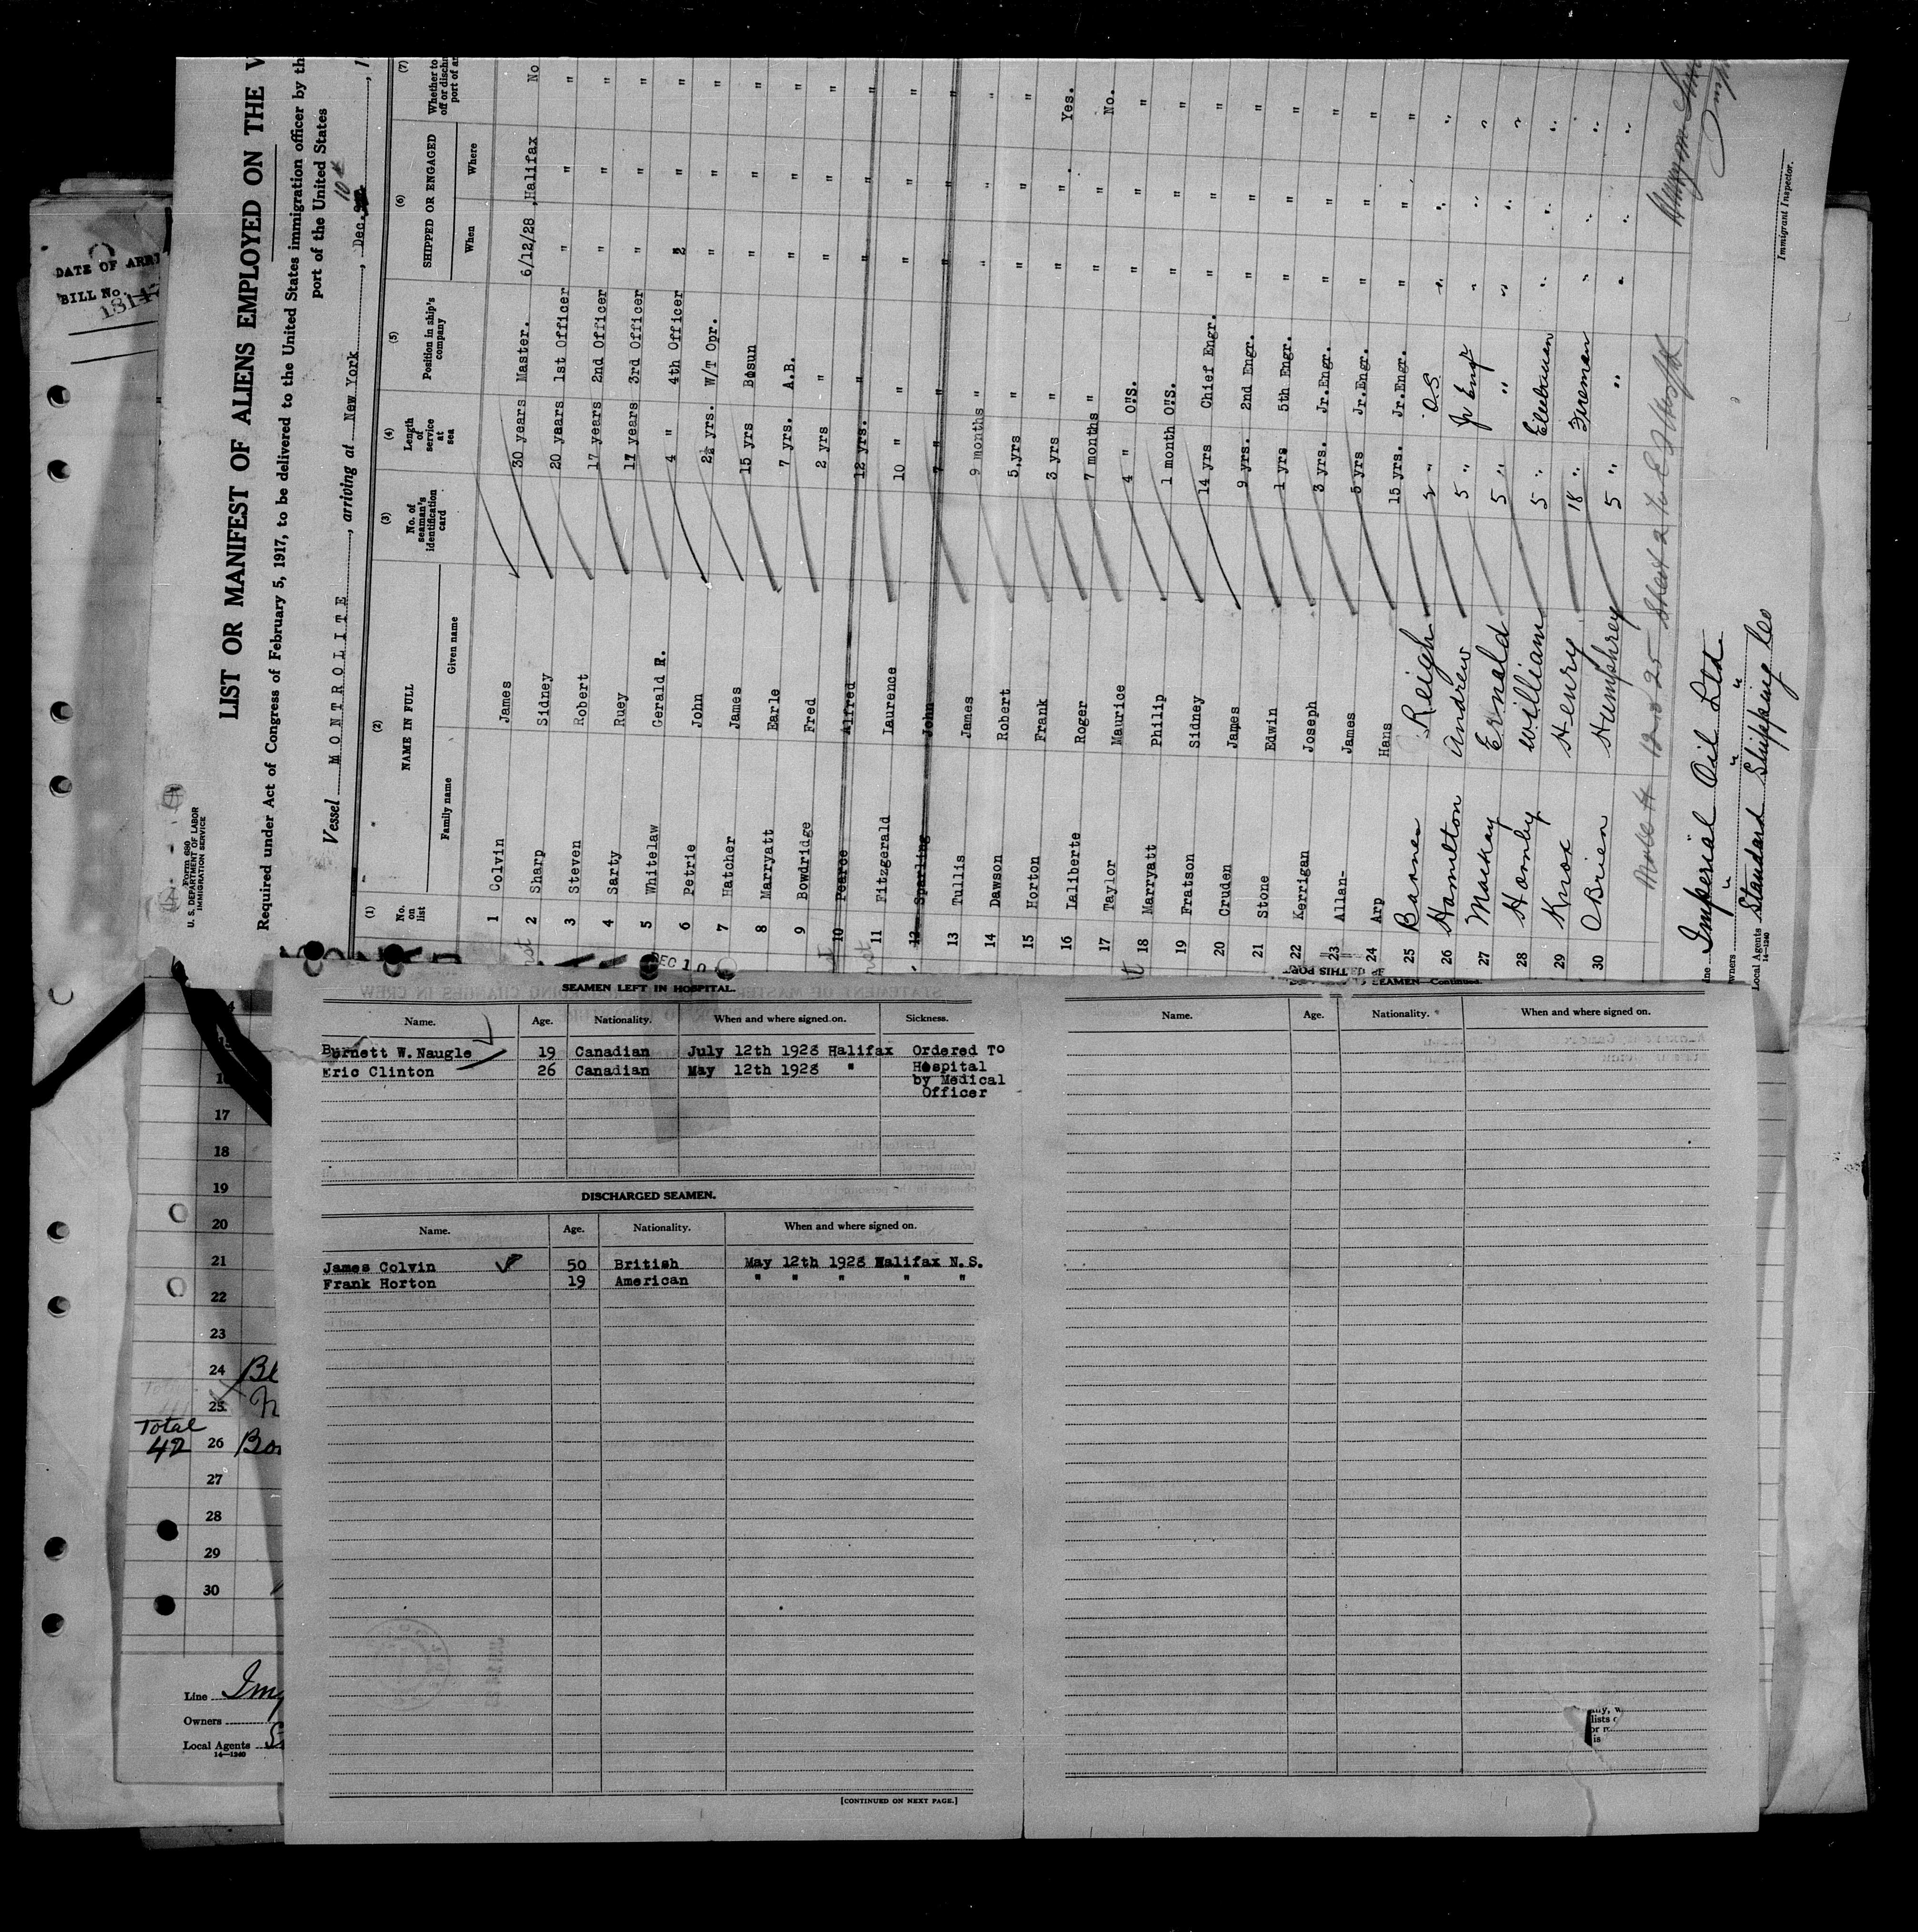 DATE OF ARRI
BILL No.
Form 680
U. S. DEPARTMENT OF LABOR
IMMIGRATION SERVICE
LIST OR MANIFEST OF ALIENS EMPLOYED ON THE V
Required under Act of Congress of February 5, 1917, to be delivered to the United States immigration officer by th
port of the United States
Vessel MONTROLITE, arriving at New York, Dec. 10th, 1
(1) (2) (3) (4) (5) (6) (7)
No. on list NAME IN FULL No. of seaman's identification card Length of service at sea Position in ship's company SHIPPED OR ENGAGED Whether to
off or disch
port of ar
Family name Given name When Where
1 Colvin James 30 years Master. 6/12/28 ,Halifax No
2 Sharp Sidney 20 years 1st Officer " " "
3 Steven Robert 17 years 2nd Officer " " "
4 Sarty Ruey 17 years 3rd Officer " " "
5 Whitelaw Gerald R. 4 " 4th Officer " " "
6 Petrie John 2½ yrs. W/T Opr. " " "
7 Hatcher James 15 yrs Bosun " " "
8 Marryatt Earle 7 yrs. A.B. " " "
9 Bowdridge Fred 2 yrs " " " "
10 Pearce Alfred 12 yrs. " " " "
11 Fitzgerald Laurence 10 " " " " "
12 Sparling John 7 " " " " "
13 Tullis James 9 months " " " "
14 Dawson Robert 5 yrs " " " "
15 Horton Frank 3 yrs " " " Yes.
16 Laliberte Roger 7 months " " " No.
17 Taylor Maurice 4 " O"S. " " "
18 Marryatt Philip 1 month O"S. " " "
19 Fratson Sidney 14 yrs Chief Engr. " " "
20 Cruden James 9 yrs. 2nd Engr. " " "
21 Stone Edwin 1 yrs 5th Engr. " " "
22 Kerrigan Joseph 3 yrs. Jr.Engr. " " "
23 Allan- James 5 yrs Jr.Engr. " " "
24 Arp Hans 15 yrs. Jr.Engr. " " "
25 Barnes Reigh 2 " O.S. " " "
26 Hamilton Andrew 5 " Jr Engr " " "
27 Mackay Ernald 5 " " " " "
28 Hornby William 5 " Electrician " " "
29 Knox Henry 18 " Fireman " " "
30 OBrien Humphrey 5 " " " " "
ine Imperial Oil Ltd
wners " " "
Local Agents Standard Shipping Co
14—1240
Immigrant Inspector.
DEC 10
SEAMEN LEFT IN HOSPITAL.
Name. Age. Nationality. When and where signed on. Sickness.
Burnett W. Naugle 19 Canadian July 12th 1928 Halifax Ordered To
Eric Clinton 26 Canadian May 12th 1928 " Hospital
by Medical
Officer
DISCHARGED SEAMEN.
Name. Age. Nationality. When and where signed on.
James Colvin 50 British May 12th 1928 Halifax N.S.
Frank Horton 19 American " " " " "
[CONTINUED ON NEXT PAGE.]
SEAMEN—Continued.
Name. Age. Nationality. When and where signed on.
17
18
19
20
21
22
23
24 Bl
25
Total
42
26 Bo
27
28
29
30
Line Imp
Owners
Local Agents S
14—1240